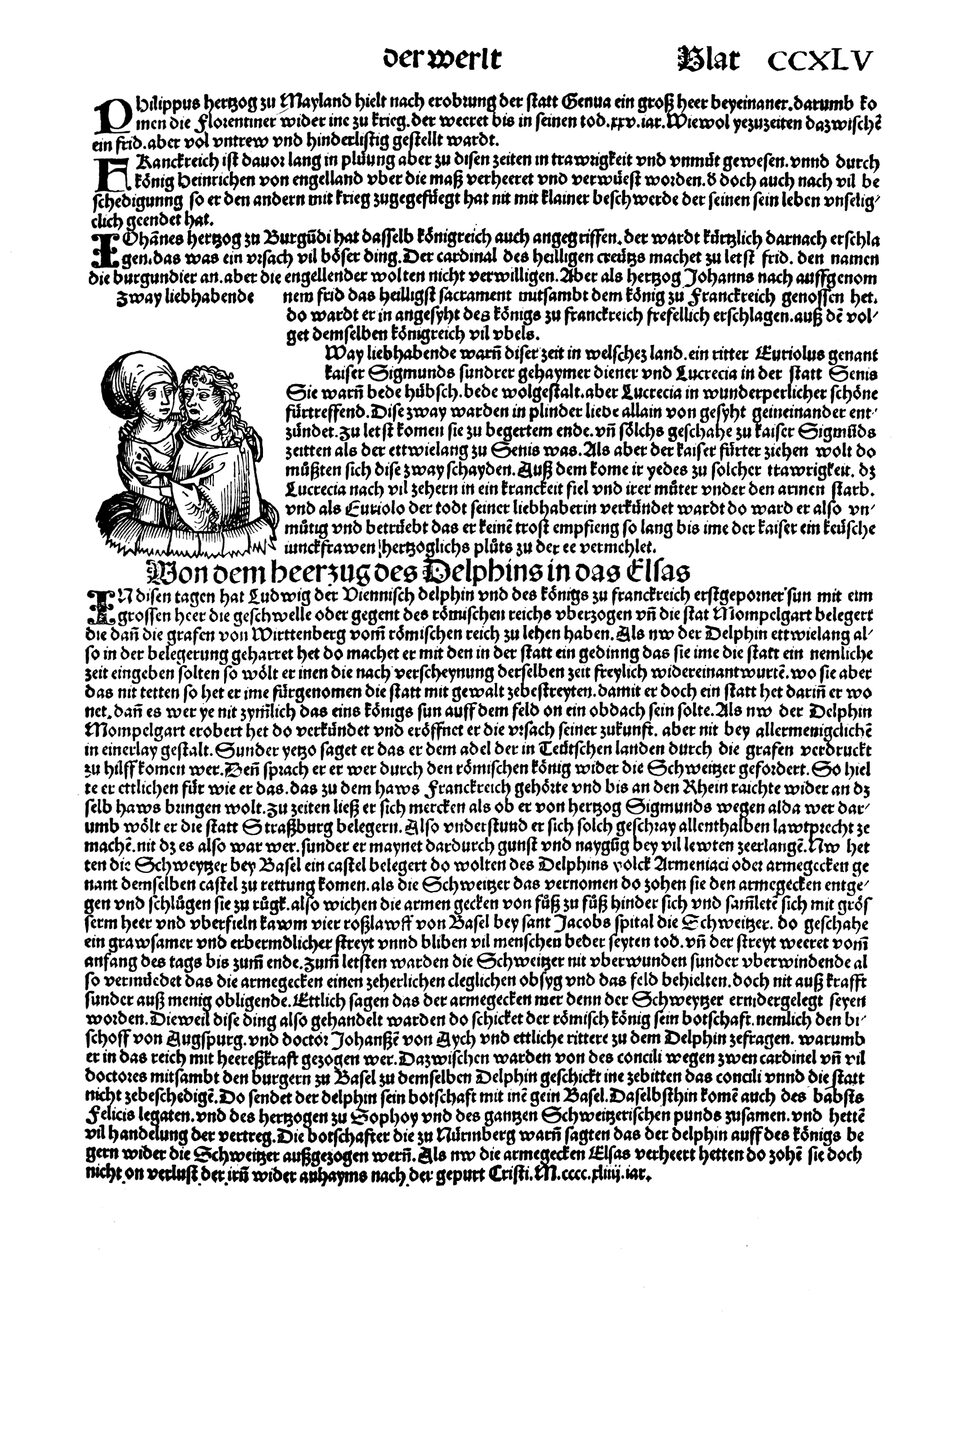 der werlt Blat CCXLV
Philippus hertzog zu Mayland hielt nach erobrung der statt Genua ein groß heer beyeinaner.darumb ko
men die Florentiner wider ine zu krieg.der weeret bis in seinen tod.xxv.iar.Wiewol yezuzeiten dazwischē
ein frid.aber vol vntrew vnd hinderlistig gestellt wardt.
FRanckreich ist dauor lang in plüung aber zu disen zeiten in trawrigkeit vnd vnmůt gewesen.vnnd durch
könig Heinrichen von engelland vber die maß verheeret vnd verwüest worden.d doch auch nach vil be
schedigunng so er den andern mit krieg zugegefüegt hat nit mit klainer beschwerde der seinen sein leben vnselig⸗
clich geendet hat.
IOhānes hertzog zu Burgūdi hat dasselb königreich auch angegriffen.der wardt kürtzlich darnach erschla
gen.das was ein vrsach vil böser ding.Der cardinal des heilligen creütz machet zu letst frid. den namen
die burgundier an.aber die engellender wolten nicht verwilligen.Aber als hertzog Johanns nach auffgenom
Zway liebhabende
nem frid das heilligst sacrament mitsambt dem könig zu Franckreich genossen het.
do wardt er in angesyht des königs zu franckreich frefellich erschlagen.auß dē vol⸗
get demselben königreich vil vbels.
Way liebhabende warn̄ diser zeit in welschez land.ein ritter Euriolus genant
kaiser Sigmunds sundrer gehaymer diener vnd Lucrecia in der statt Senis
Sie warn̄ bede hübsch.bede wolgestalt.aber Lucrecia in wunderperlicher schöne
fürtreffend.Dise zway warden in plinder liebe allain von gesyht geineinander ent⸗
zündet.Zu letst komen sie zu begertem ende.vn̄ sölchs geschahe zu kaiser Sigmūds
zeitten als der ettwielang zu Senis was.Als aber der kaiser fürter ziehen wolt do
müßten sich dise zway schayden.Auß dem kome ir yedes zu solcher trawrigkeit. dz
Lucrecia nach vil zehern in ein kranckeit fiel vnd irer můter vnder den armen starb.
vnd als Euriolo der todt seiner liebhaberin verkündet wardt do ward er also vn⸗
můtig vnd betrüebt das er keinē trost empfieng so lang bis ime der kaiser ein keüsche
iunckfrawen hertzoglichs plůts zu der ee vermehlet.
Von dem heerzug des Delphins in das Elsas
IN disen tagen hat Ludwig der Viennisch delphin vnd des königs zu franckreich erstgeporner sun mit eim
grossen heer die geschwelle oder gegent des römischen reichs vberzogen vn̄ die stat Mompelgart belegert
die dan̄ die grafen von Wirttenberg vom̄ römischen reich zu lehen haben.Als nw der Delphin ettwielang al⸗
so in der belegerung geharret het do machet er mit den in der statt ein gedinng das sie ime die statt ein nemliche
zeit eingeben solten so wölt er inen die nach verscheynung derselben zeit freylich widereinantwurtē.wo sie aber
das nit tetten so het er ime fürgenomen die statt mit gewalt zebestreyten.damit er doch ein statt het darin̄ er wo
net.dan̄ es wer ye nit zymlich das eins königs sun auff dem feld on ein obdach sein solte.Als nw der Delphin
Mompelgart erobert het do verkündet vnd eröffnet er die vrsach seiner zukunft. aber nit bey allermenigclichē
in einerlay gestalt.Sunder yetzo saget er das er dem adel der in Teütschen landen durch die grafen verdruckt
zu hilff komen wer.Den̄ sprach er er wer durch den römischen könig wider die Schweitzer gefordert.So hiel
te er ettlichen für wie er das.das zu dem haws Franckreich gehörte vnd bis an den Rhein raichte wider an dz
selb haws bringen wolt.Zu zeiten ließ er sich mercken als ob er von hertzog Sigmunds wegen alda wer dar⸗
umb wölt er die statt Straßburg belegern.Also vnderstund er sich solch geschray allenthalben lawtprecht ze
machē.nit dz es also war wer.sunder er maynet dardurch gunst vnd naygūg bey vil lewten zeerlangē.Nw het
ten die Schweytzer bey Basel ein castel belegert do wolten des Delphins volck Armeniaci oder armegecken ge
nant demselben castel zu rettung komen.als die Schweitzer das vernomen do zohen sie den armegecken entge⸗
gen vnd schlůgen sie zu rügk.also wichen die armen gecken von fůß zu fůß hinder sich vnd sam̄letē sich mit grös
serm heer vnd vberfieln kawm vier roßlawff von Basel bey sant Jacobs spital die Schweitzer. do geschahe
ein grawsamer vnd erbermdlicher streyt vnnd bliben vil menschen beder seyten tod.vn̄ der streyt weeret vom̄
anfang des tags bis zum̄ ende.Zum̄ letsten warden die Schweitzer nit vberwunden sunder vberwindende al
so vermüedet das die armegecken einen zeherlichen cleglichen obsyg vnd das feld behielten.doch nit auß krafft
sunder auß menig obligende.Ettlich sagen das der armegecken mer denn der Schweytzer ernidergelegt seyen
worden.Dieweil dise ding also gehandelt warden do schicket der römisch könig sein botschaft.nemlich den bi⸗
schoff von Augspurg.vnd doctor Johanßē von Aych vnd ettliche rittere zu dem Delphin zefragen. warumb
er in das reich mit heereßkraft gezogen wer.Dazwischen warden von des concili wegen zwen cardinel vn̄ vil
doctores mitsambt den burgern zu Basel zu demselben Delphin geschickt ine zebitten das concili vnnd die statt
nicht zebeschedigē.Do sendet der delphin sein botschaft mit inē gein Basel.Daselbsthin komē auch des babsts
Felicis legaten.vnd des hertzogen zu Sophoy vnd des gantzen Schweitzerischen punds zusamen.vnd hettē
vil handelung der vertreg.Die botschafter die zu Nürmberg warn̄ sagten das der delphin auff des königs be
gern wider die Schweitzer außgezogen wern̄.Als nw die armegecken Elsas verheert hetten do zohē sie doch
nicht on verlust der irn̄ wider anhayms nach der gepurt Cristi.M.cccc.xliiij.iar.